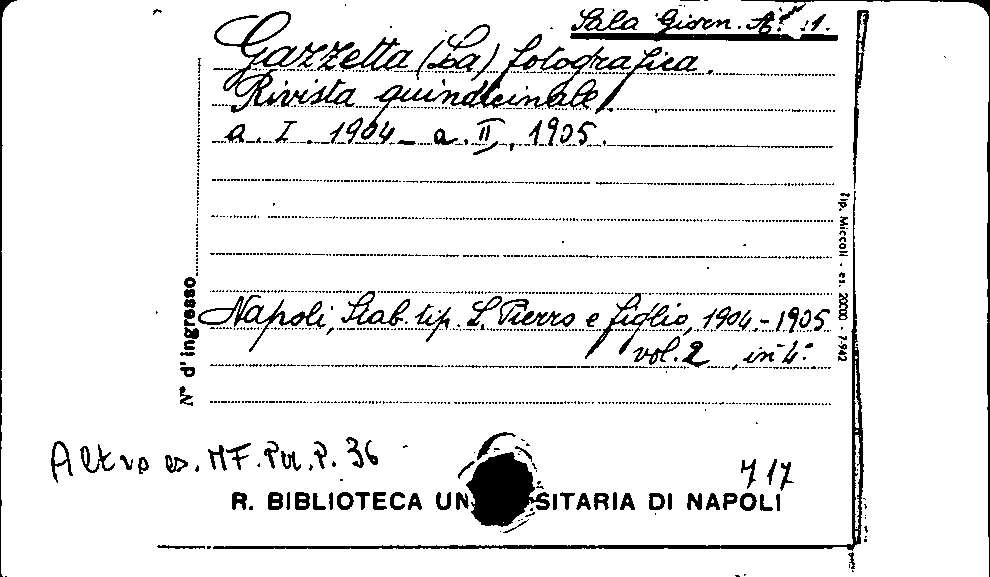 Sala Giorn. A. 1.
Gazzetta (La) fotografica.
Rivista quindicinale.
a. I. 1904 - a. II, 1905.
Napoli, Stab. tip. L. Pierro e figlio, 1904-1905
vol. 2 in-4°
N° d'ingresso
Tip. Miccoli - es. 20000 - 7-942
Altro es. MF. Per. P. 36
717
R. BIBLIOTECA UN SITARIA DI NAPOLI